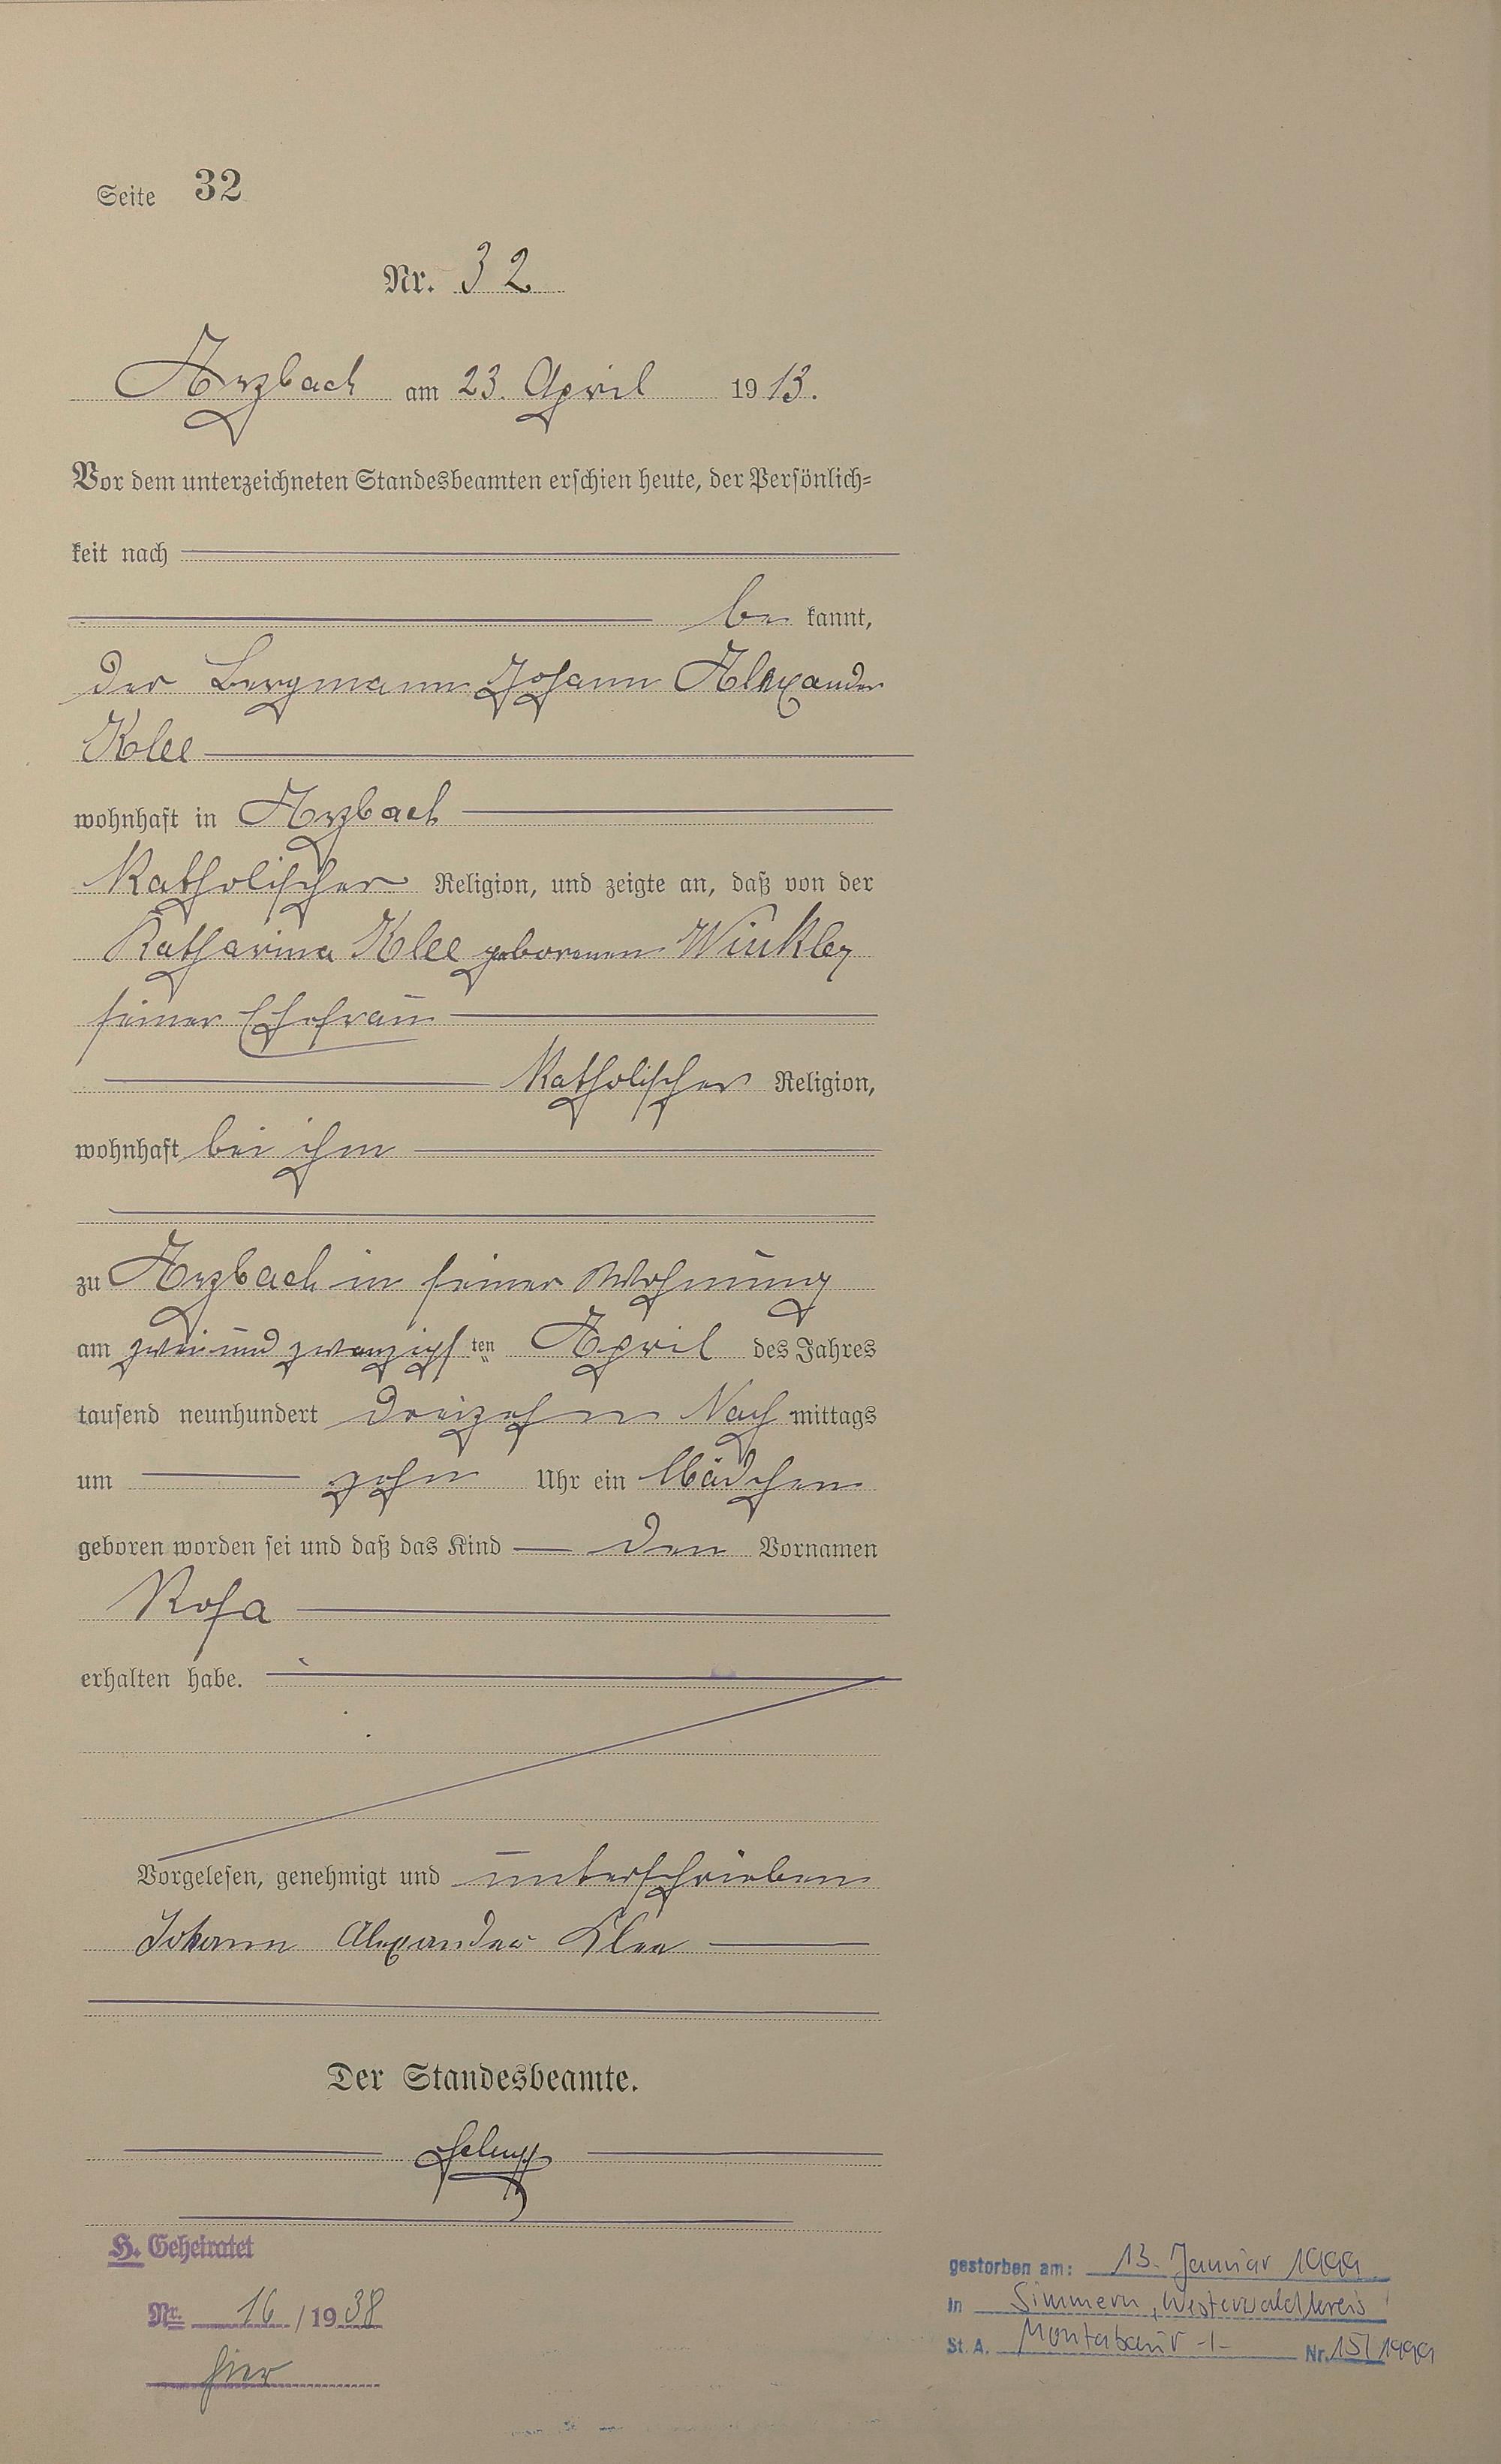 Seite 32
Nr. 32
Arzbach am 23. April 1913.
Vor dem unterzeichneten Standesbeamten erschien heute, der Persönlich-
keit nach
be kannt,
der Bergmann Johann Alexander
Klee
wohnhaft in Arzbach
Katholischer Religion, und zeigte an, daß von der
Katharina Klee geborenen Winkler
seiner Ehefrau
Katholischer Religion,
wohnhaft bei ihm
zu Arzbach in seiner Wohnung
am zwei und zwanzigsten April des Jahres
tausend neunhundert dreizehn Nach mittags
um zehn Uhr ein Mädchen
geboren worden sei und daß das Kind den Vornamen
Rosa
erhalten habe.
Vorgelesen, genehmigt und unterschrieben
Johann Alexander Klee
Der Standesbeamte.
H. Geheiratet
Nr. 16 / 1938
hier
gestorben am: 13. Januar 1999
in Simmern, Westerwaldkreis
St. A. Montabaur -1- Nr. 15/1999